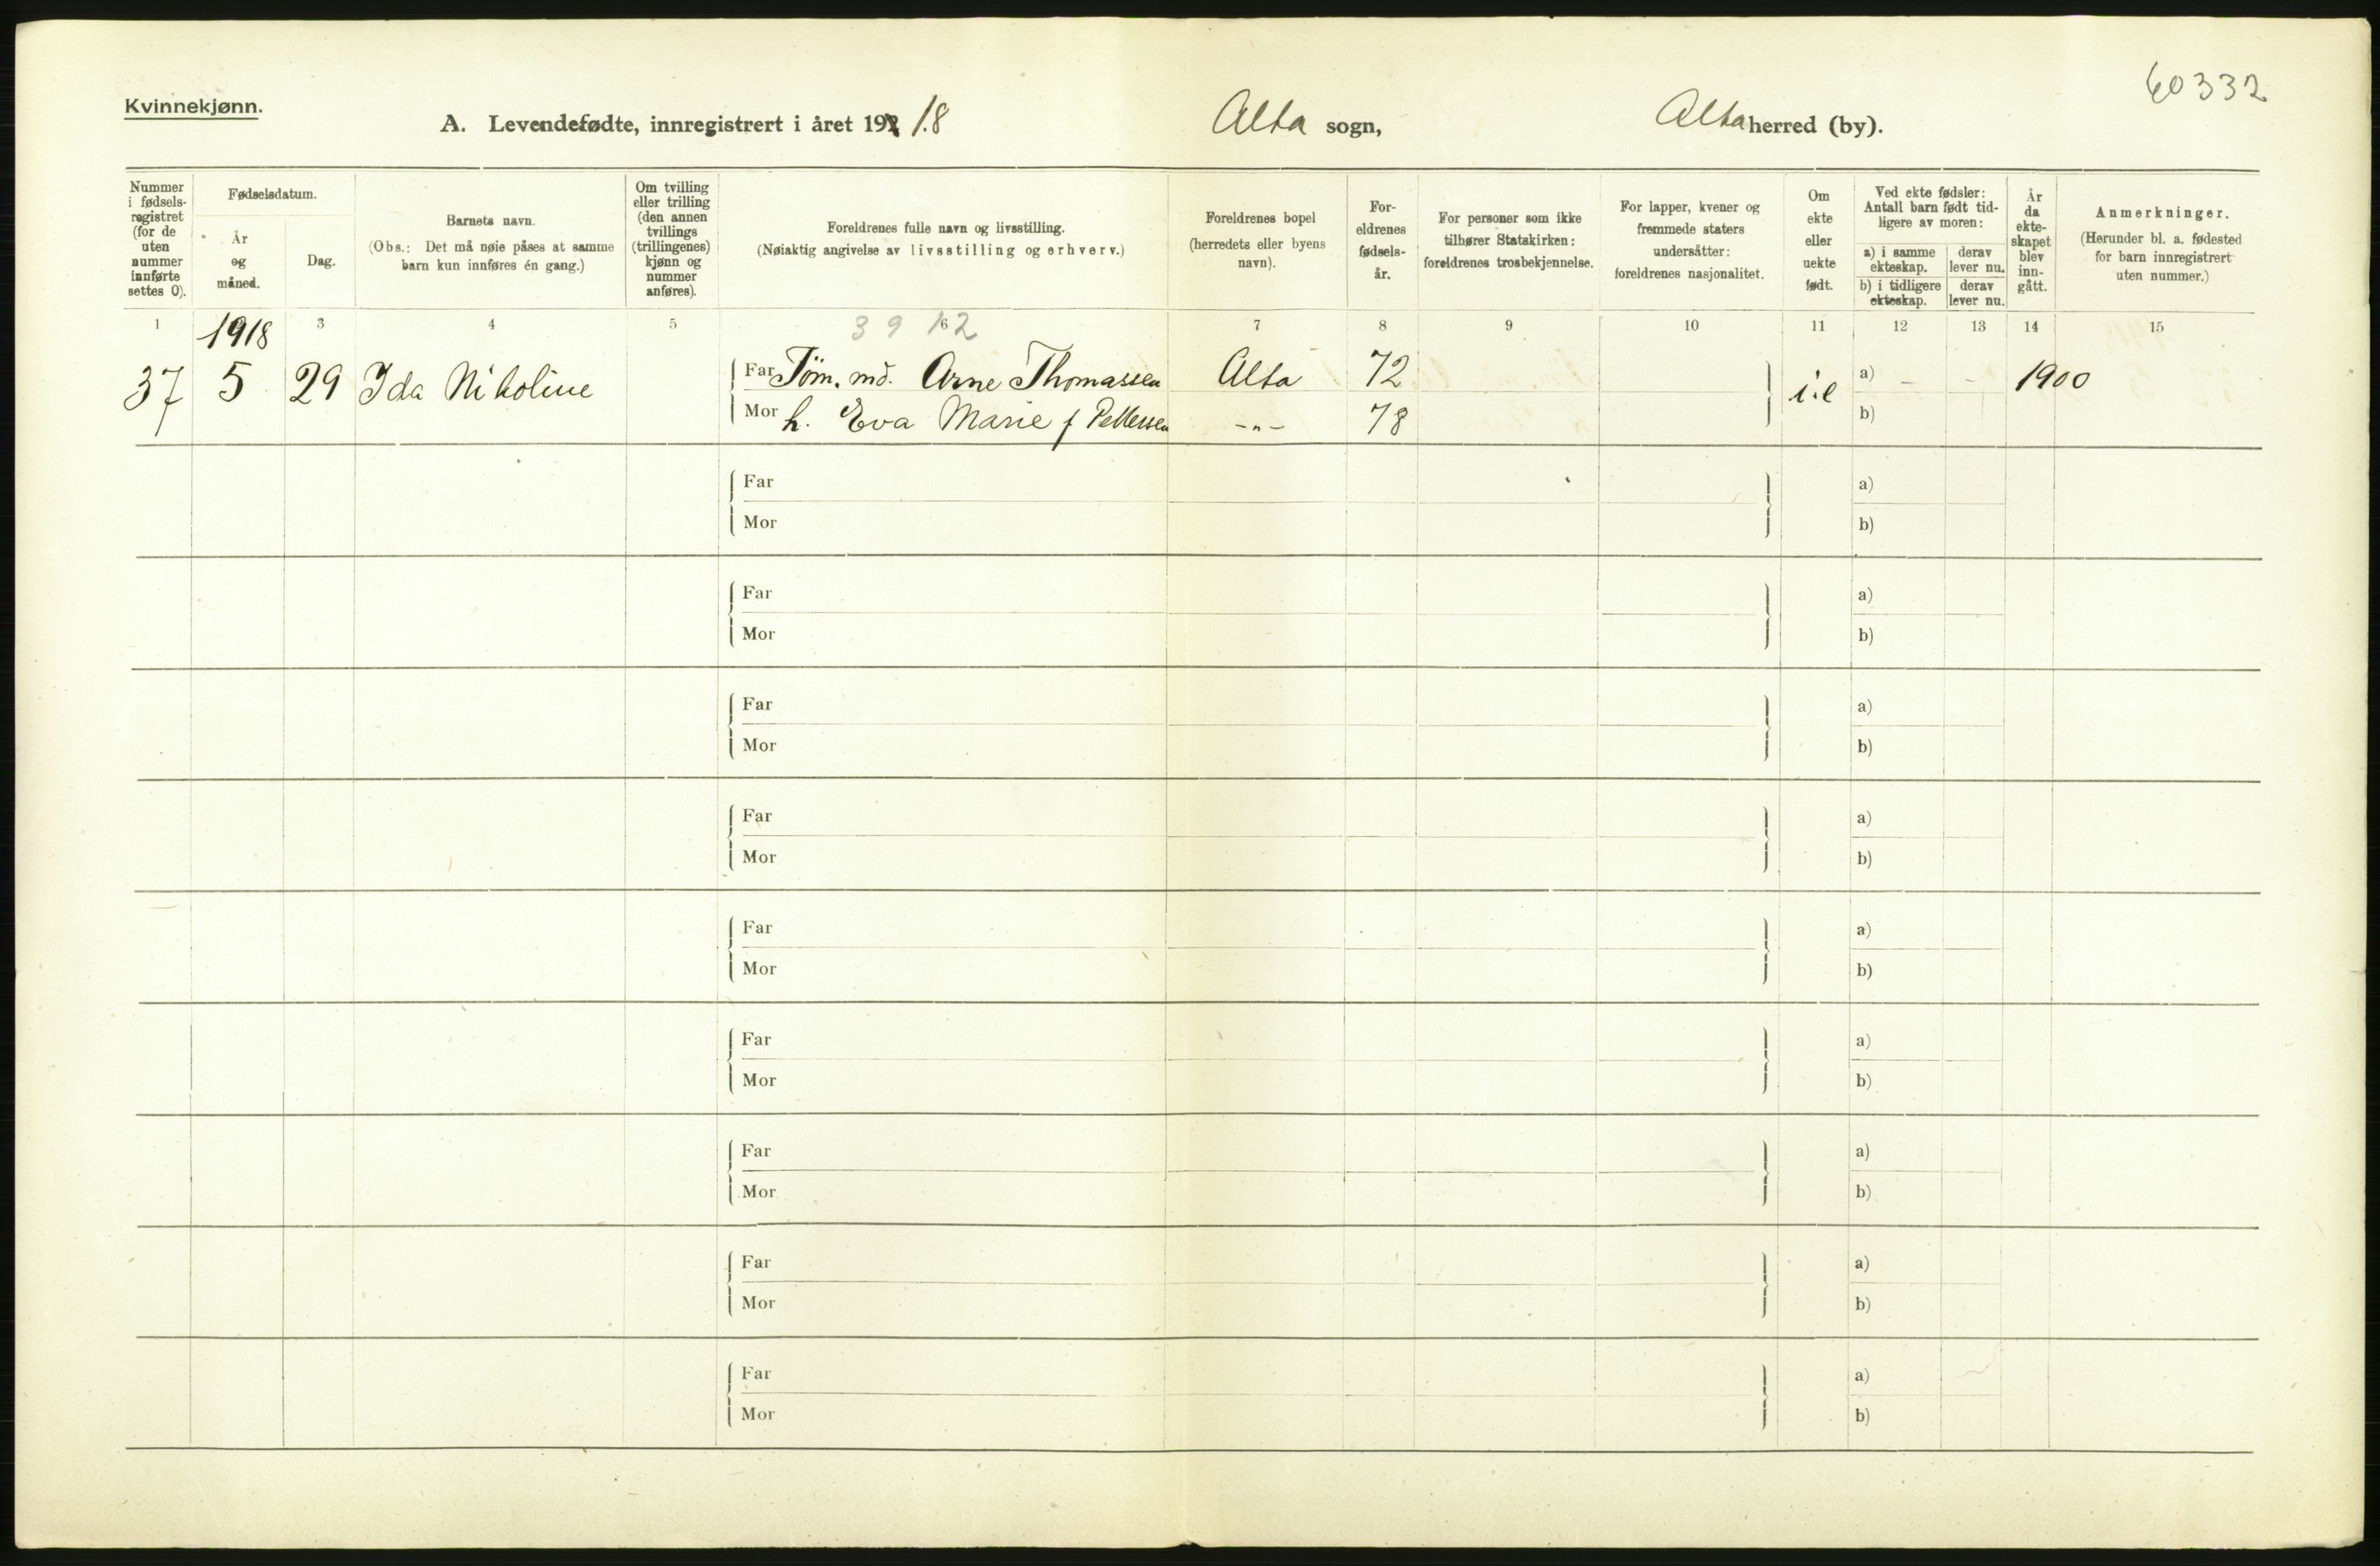 60332
Kvinnekjønn.
A. Levendefødte, innregistrert i året 192 18 Alta sogn, Alta herred (by).
Nummer i fødsels-registret (for de uten nummer innførte settes 0).
Fødselsdatum.
År og måned.
Dag.
Barnets navn.
(Obs.: Det må nøie påses at samme barn kun innføres én gang.)
Om tvilling eller trilling (den annen tvillings (trillingenes) kjønn og nummer anføres).
Foreldrenes fulle navn og livsstilling.
(Nøiaktig angivelse av livsstilling og erhverv.)
Foreldrenes bopel (herredets eller byens navn).
For-eldrenes fødsels-år.
For personer som ikke tilhører Statskirken: foreldrenes trosbekjennelse.
For lapper, kvener og fremmede staters undersåtter: foreldrenes nasjonalitet.
Om ekte eller uekte født.
Ved ekte fødsler: Antall barn født tid-ligere av moren:
a) i samme ekteskap. derav lever nu.
b) i tidligere ekteskap. derav lever nu.
År da ekte-skapet blev inn-gått.
Anmerkninger.
(Herunder bl. a. fødested for barn innregistrert uten nummer.)
1 1918 3 4 5 6 7 8 9 10 11 12 13 14 15
3912
37 5 29 Ida Nikoline Far Töm. md. Arne Thomassen Alta 72 i.e a) – – 1900
Mor h. Eva Marie f Pettersen -"- 78 b)
Far a)
Mor b)
Far a)
Mor b)
Far a)
Mor b)
Far a)
Mor b)
Far a)
Mor b)
Far a)
Mor b)
Far a)
Mor b)
Far a)
Mor b)
Far a)
Mor b)